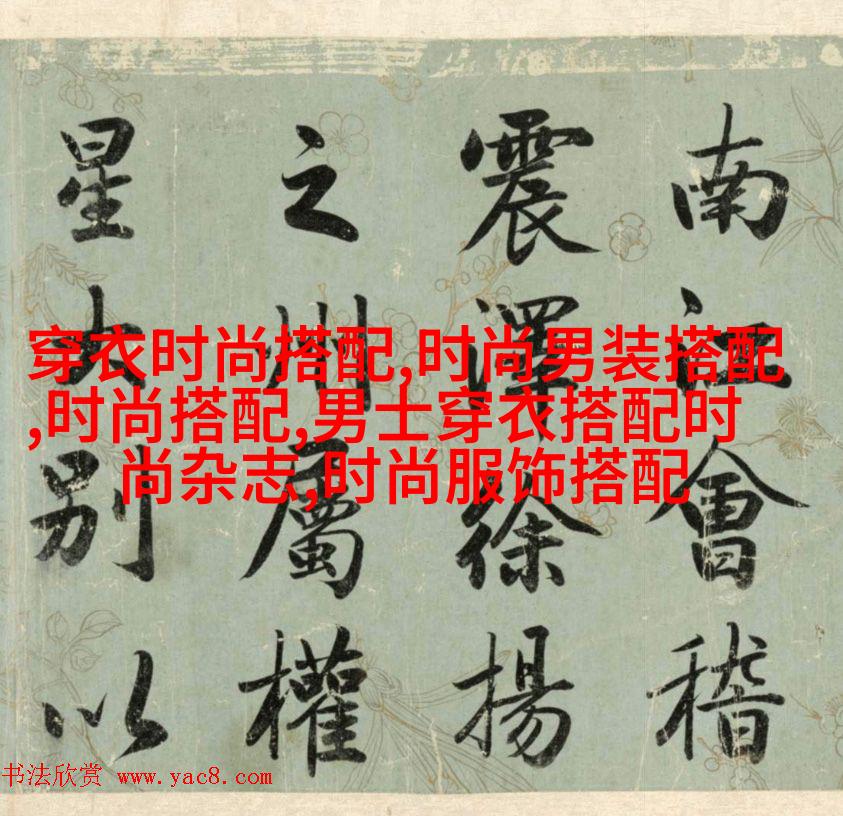 南江會稽
震澤徐揚
之州屬權
星大別以
穿衣时尚搭配,时尚男装搭配
,时尚搭配,男士穿衣搭配时
尚杂志,时尚服饰搭配
书法欣赏 www.yac8.com